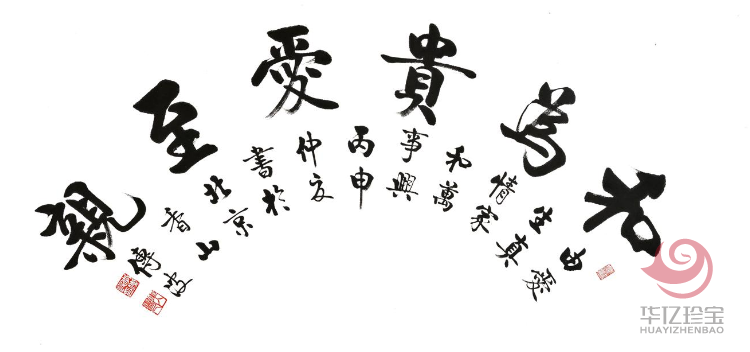 和為貴愛至親
由愛
生真
情家
和萬
事興
丙申
仲夏
書於
北京
香山
傅
华亿珍宝
HUAYIZHENBAO